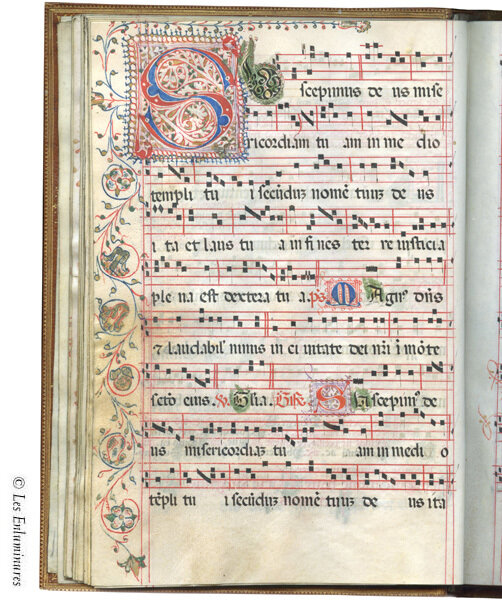 Suscepimus de us mise
ricordiam tu am in me dio
templi tu i secūduz nomē tuuz de us
i ta et laus tu a in fi nes ter re iusticia
ple na est dextera tu a. ps. Magnus dn̄s
⁊ laudabil' nimis in ci uitate dei nr̄i ī mōte
scto eius. Glīa. Suscepim' de
us misericordiaz tu am in medi o
tēpli tu i secūduz nomē tuuz de us ita
© Les Enluminures